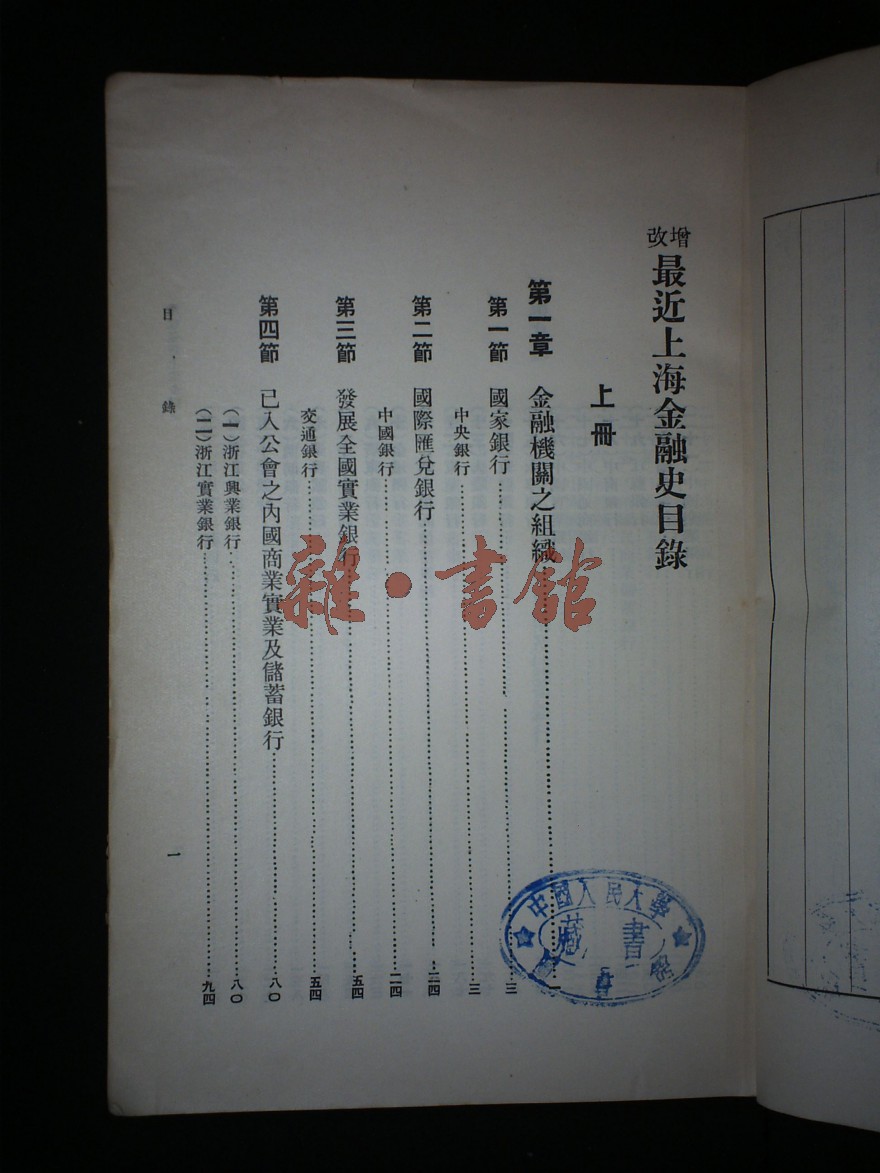 增改
最近上海金融史目錄
上冊
第一章 金融機關之組織……一
第一節 國家銀行……三
中央銀行……三
第二節 國際匯兌銀行……二四
中國銀行……二四
第三節 發展全國實業銀行……五四
交通銀行……五四
第四節 已入公會之內國商業實業及儲蓄銀行……八〇
(一)浙江興業銀行……八〇
(二)浙江實業銀行……九四
目錄
一
雜·書館
中國人民大學
藏書